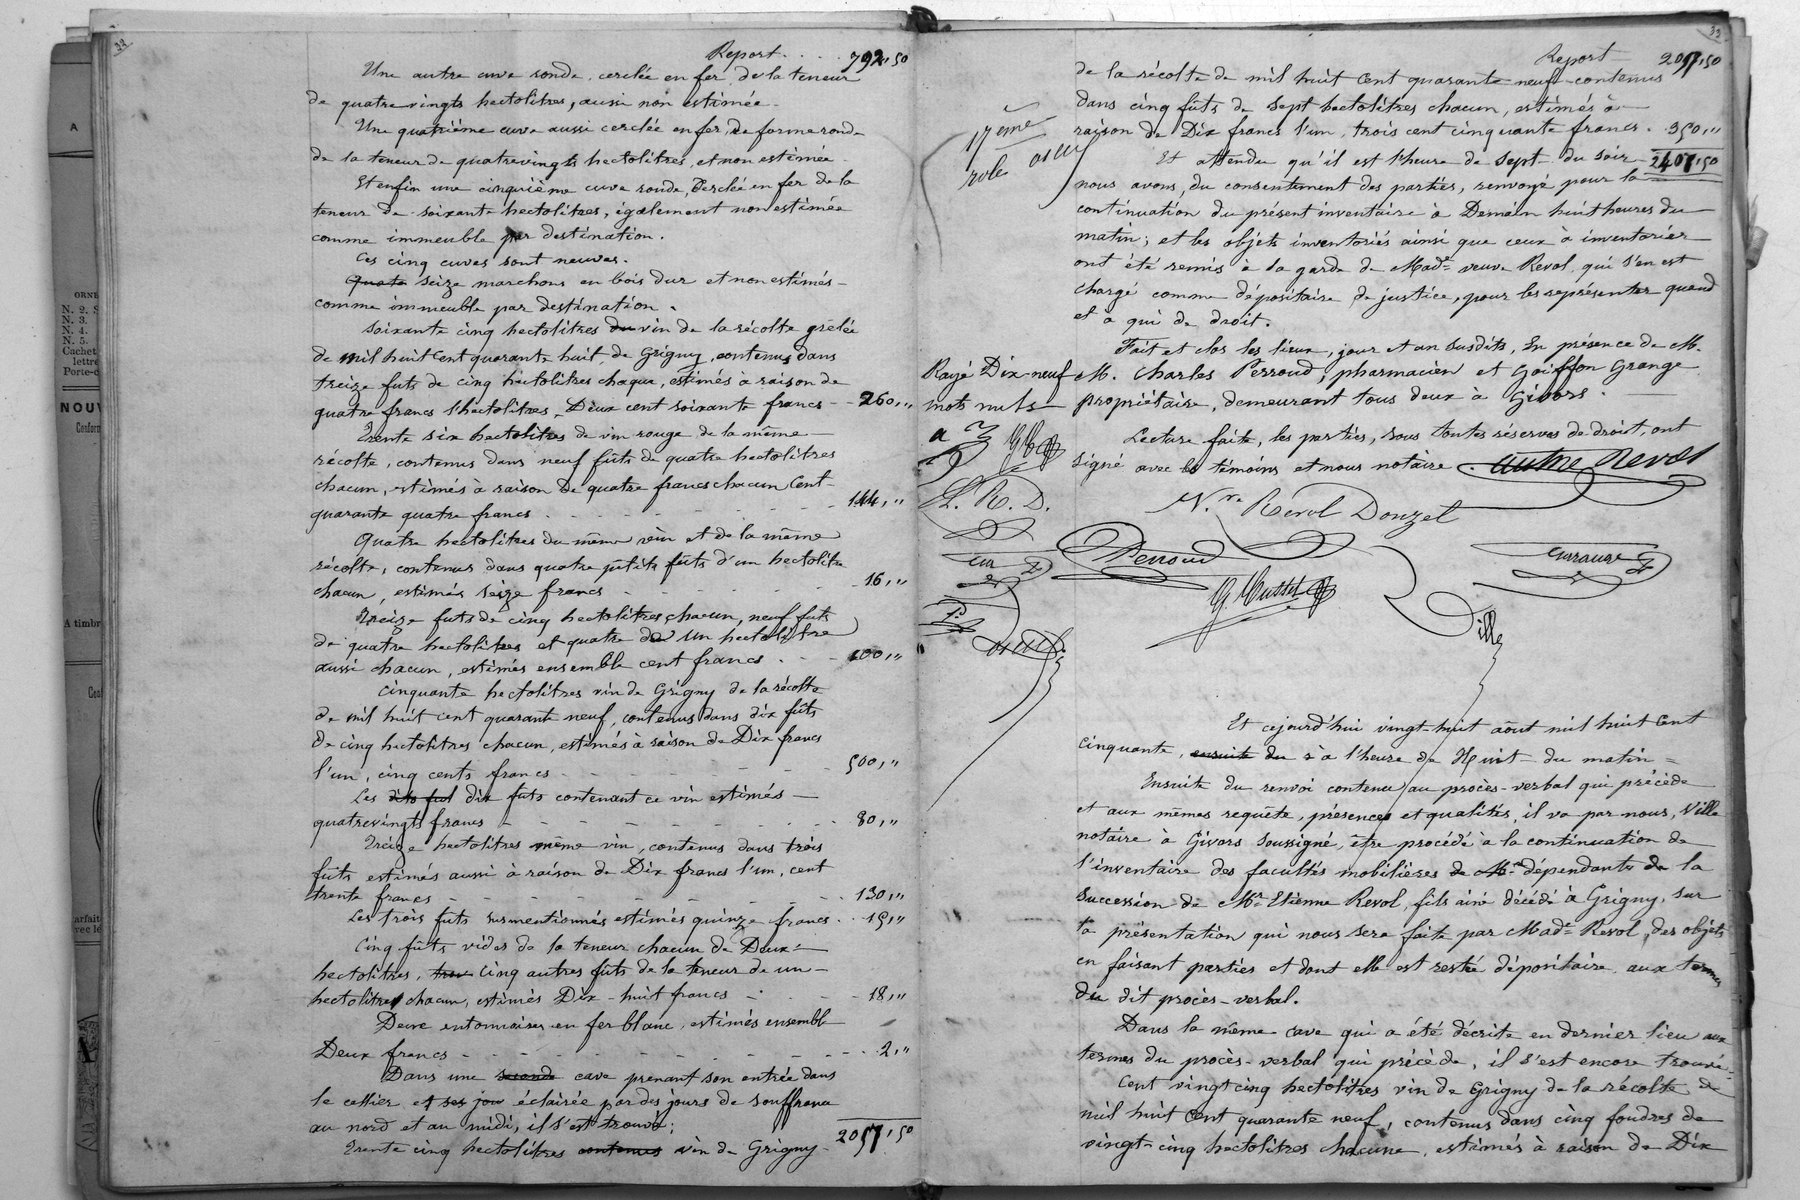 ORNE
N. 2. S
N. 3.
N. 4.
N. 5.
Cachet
lettre
Porte-c
NOUV
Conform
A timbr
Conf
arfait
vec lé
33
Report. . . . 792,50
Une autre cuve ronde, cerclée en fer de la teneur
de quatrevingts hectolitres, aussi non estimée.
Une quatrième cuve aussi cerclée en fer, de forme ronde
de la teneur de quatrevingts hectolitres, et non estimée.
Et enfin une cinquième cuve ronde, Cerclée en fer de la
teneur de soixante hectolitres, également non estimée
comme immeuble par destination.
Ces cinq cuves sont neuves.
Quate seize marchons en bois dur et non estimés
comme immeuble par destination.
Soixante cinq hectolitres du vin de la récolte grêlée
de mil huit Cent quarante huit, de Grigny, contenus dans
treize futs de cinq hectolitres chaque, estimés à raison de
quatre francs l'hectolitres, Deux cent soixante francs - - 260,"
Trente six hectolitres de vin rouge de la même
récolte, contenus dans neuf fûts de quatre hectolitres
chacun, estimés à raison de quatre francs chacun Cent
quarante quatre francs - - - - 144,"
Quatre hectolitres du même vin et de la même
récolte, contenus dans quatre petits fûts d'un hectolitre
chacun, estimés seize francs - - - - 16,"
Treize futs de cinq hectolitres chacun, neuf futs
de quatre hectolitres et quatre de un hectolitre
aussi chacun, estimés ensemble cent francs - - - 100,"
Cinquante hectolitres vin de Grigny de la récolte
de mil huit cent quarante neuf, contenus dans dix fûts
de cinq hectolitres chacun, estimés à raison de Dix francs
l'un, cinq cents francs - - - - 500,"
Les dits fut dix futs contenant ce vin estimés
quatrevingts francs - - - - 80,"
Treize hectolitres même vin, contenus dans trois
futs estimés aussi à raison de Dix francs l'un, cent
trente francs - - - - 130,"
Les trois futs susmentionnés estimés quinze francs . . 15,"
Cinq fûts vides de la teneur chacun de Deux
hectolitres, trois cinq autres fûts de la teneur de un
hectolitres chacun, estimés Dix-huit francs - - - 18,"
Deux entonnoires en fer blanc, estimés ensemble
Deux francs - - - - 2,"
Dans une seconde cave prenant son entrée dans
le cellier et ses jou éclairée par des jours de souffrance
au nord et au midi, il s'est trouvé;
Trente cinq hectolitres contenus vin de Grigny 2057,50
33
Report 2057,50
de la récolte de mil huit Cent quarante neuf contenus
dans cinq fûts de Sept hectolitres chacun, estimés à
raison de Dix francs l'un, trois cent cinquante francs . 350,"
17eme
role
Et attendu qu'il est l'heure de Sept du soir 2407,50
nous avons, du consentement des parties, renvoyé pour la
continuation du présent inventaire à Demain huit heures du
matin; et les objets inventoriés ainsi que ceux à inventorier
ont été remis à la garde de Made veuve Revol, qui s'en est
chargé comme dépositaire de justice, pour les représenter quand
et à qui de droit.
Fait et clos les lieux, jour et an susdits, En présence de M.
Rayé Dix-neuf
mots nuls
M. Charles Perroud, pharmacien et Goiffon Grange
propriétaire, demeurant tous deux à Givors.
Lecture faite, les parties, sous toutes réserves de droit, ont
signé avec les témoins et nous notaire.
Revol
L. R. D.
Vve Revol Donzel
Perroud
Ville
Et cejourd'hui vingt-huit août mil huit Cent
cinquante, ensuite du à l'heure de Huit du matin
Ensuite du renvoi contenu au procès-verbal qui précède
et aux mêmes requête, présences et qualités, il va par nous, Ville
notaire à Givors soussigné, être procédé à la continuation de
l'inventaire des facultés mobilières de Mr dépendants de la
succession de Mr Etienne Revol, fils ainé décédé à Grigny, sur
la présentation qui nous sera faite par Made Revol, des objets
en faisant parties et dont elle est restée dépositaire aux termes
du dit procès-verbal.
Dans la même cave qui a été décrite en dernier lieu aux
termes du procès-verbal qui précède, il s'est encore trouvé
Cent vingt cinq hectolitres vin de Grigny de la récolte de
mil huit Cent quarante neuf, contenus dans cinq foudres de
vingt-cinq hectolitres chacune, estimés à raison de Dix